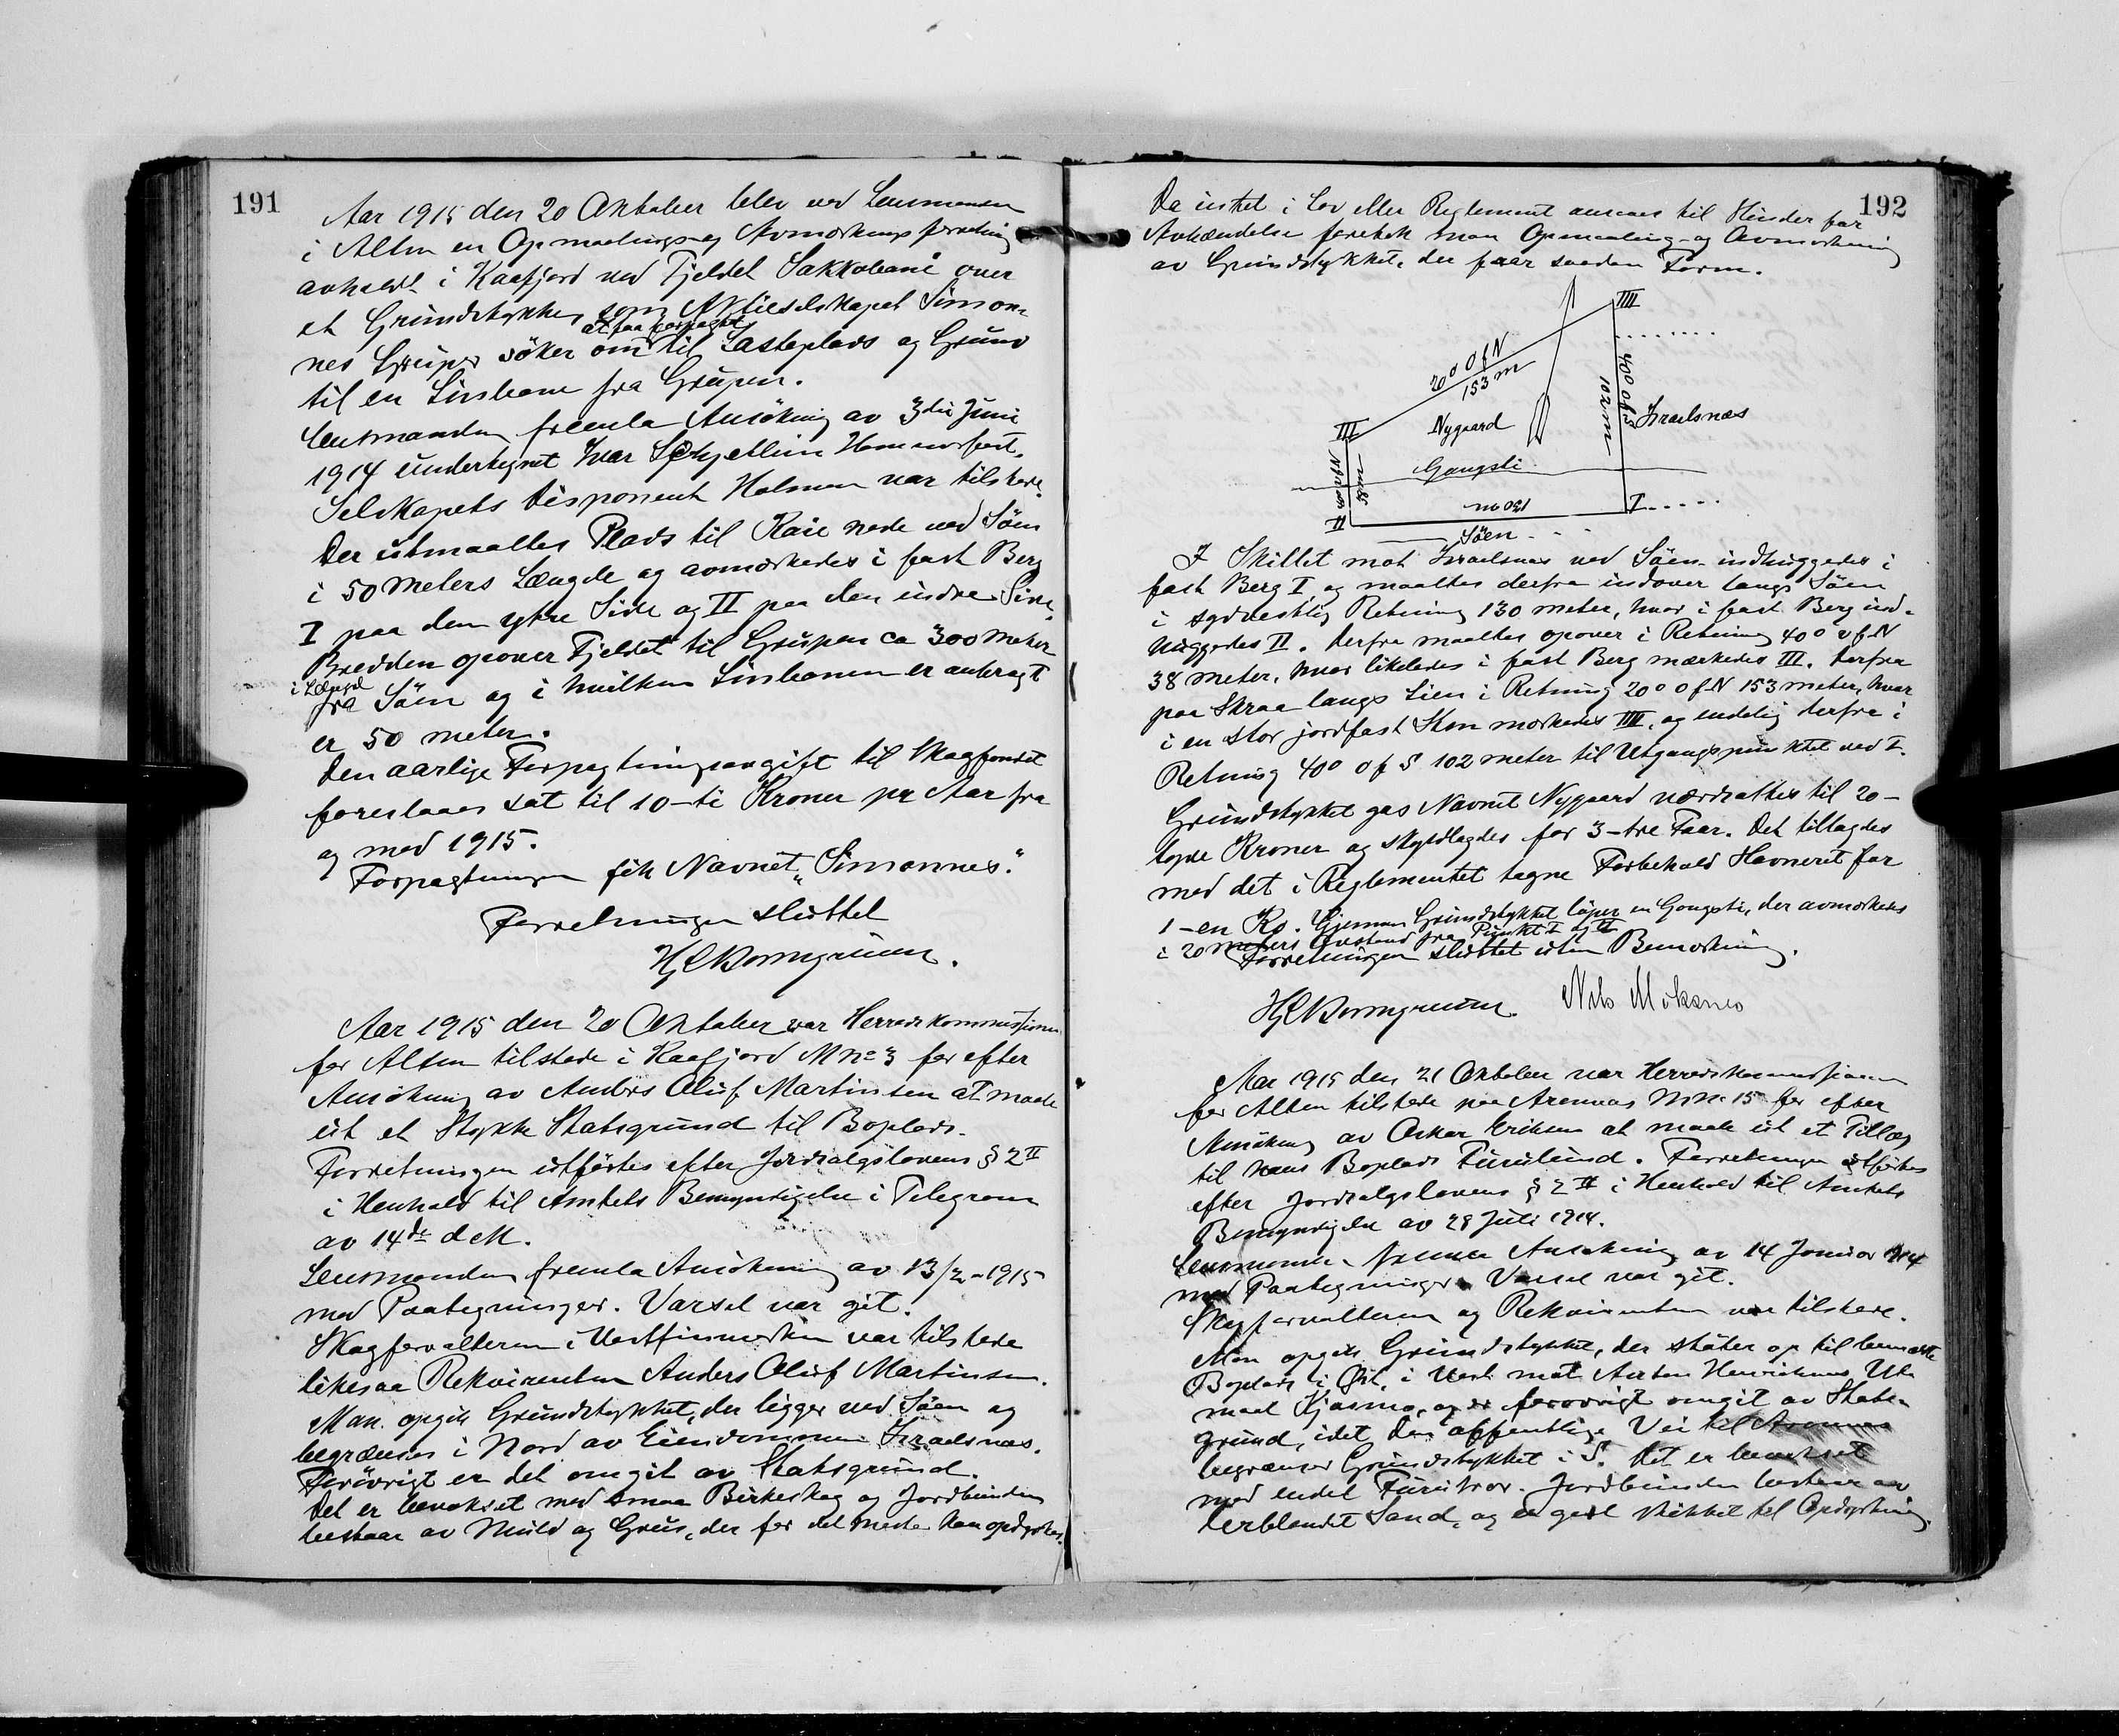 191
Aar 1915 den 20 Oktober blev ved Lensmanden
i Alten en Opmaalings og Avmerkings forretning
avholdt i Kaafjord ved Fjeldet Sakkobani over
et Grundstykke, som Aktieselskapet Simon-
nes Gruper söker om at faa forpagtet til Lasteplads og Grund
til en Linbane fra Grupen.
Lensmanden fremla Ansökning av 3die Juni
1914 undertegnet Ivar Hammerfest.
Selskapets Disponent Holmen var tilstede.
Der utmaaltes Plads til Kaie nede ved Söen
i 50 Meters Længde og avmerkedes i fast Berg
I paa den ytre Side og II paa den indre Side.
Bredden opover Fjeldet til Grupen ca 300 Meter
i Længde fra Söen og i hvilken Linbanen er anbragt
er 50 meter.
Den aarlige Forpagtningsavgift til Skogfondet
foreslaaes sat til 10 - ti Kroner pr Aar fra
og med 1915.
Forpagtningen fik Navnet "Simonnes".
Forretningen sluttet

Aar 1915 den 20 Oktober var Herredskommissionen
for Alten tilstede i Kaafjord M No 3 for efter
Ansökning av Anders Oluf Martinsen at maale
ut et Stykke Statsgrund til Boplads.
Forretningen utförtes efter Jordsalgslovens § 2 II
i Henhold til Amtets Bemyndigelse i Telegram
av 14de d M.
Lensmanden fremla Ansökning av 13/2 - 1915
med Paategninger. Varsel var git.
Skogforvalteren i Vestfinmarken var tilstede
likesaa Rekvirenten Anders Oluf Martinsen.
Man opgik Grundstykket, der ligger ved Söen og
begrænses i Nord av Eiendommen Israelsnæs.
Forövrigt er det omgit av Statsgrund.
Det er bevokset med smaa Birkeskog og Jordbunden
bestaar av Muld og Grus, der for det meste kan opdyrkes.
192
Da intet i Lov eller Reglement ansees til Hinder for
Avhændelse foretok man Opmaaling- og Avmerkning
av Grundstykket, der faar saadan Form.
IIII
20° O f N
153 m
40° O f S
102 m
Israelsnæs
III
Nygaard
Gangsti
38 m
130 m
II
I
Söen
I Skillet mot Israelsnæs ved Söen indhuggedes i
fast Berg I og maaltes derfra indover langs Söen
i sydvestlig Retning 130 meter, hvor i fast Berg ind-
huggedes II. Derfra maaltes opover i Retning 40° v f N
38 meter, hvor likeledes i fast Berg merkedes III. Derfra
paa Skraa langs Lien i Retning 20° O f N 153 meter, hvor
i en stor jordfast Sten merkedes IIII, og endelig derfra i
Retning 40° O f S 102 meter til Utgangspunktet ved I.
Grundstykket gas Navnet Nygaard værdsattes til 20 -
tyve Kroner og skyldlagdes for 3 - tre Faar. Det tillagdes
med det i Reglementet tagne Forbehold Havneret for
1 - en Ko. Gjennem Grundstykket löper en Gangsti, der avmerkedes
i 20 meters Avstand fra Punkt I og II
Forretningen sluttet uten Bemerkning.
Nils Moksnes
Aar 1915 den 21 Oktober var Herredskommissionen
for Alten tilstede paa Aronnæs M No 15 for efter
Ansökning av Oskar Eriksen at maale ut et Tillæg
til hans Boplads Furulund. Forretningen utförtes
efter Jordsalgslovens § 2 II i Henhold til Amtets
Bemyndigelse av 28 Juli 1914.
Lensmanden fremla Ansökning av 14 Januar 1914
med Paategninger. Varsel var git.
Skogforvalteren og Rekvirenten var tilstede.
Man opgik Grundstykket, der støter op til bemeldte
Boplads i Øst, i Vest mot Anton Henriksens Ut-
maal Kjosmo, og er forövrigt omgit av Stats-
grund, idet den offentlige Vei til Aronnes
begrænser Grundstykket i S. Det er bevokset
med endel Furutrær. Jordbunden bestaar av
Lerblandet Sand, og er godt skikket til Opdyrkning.